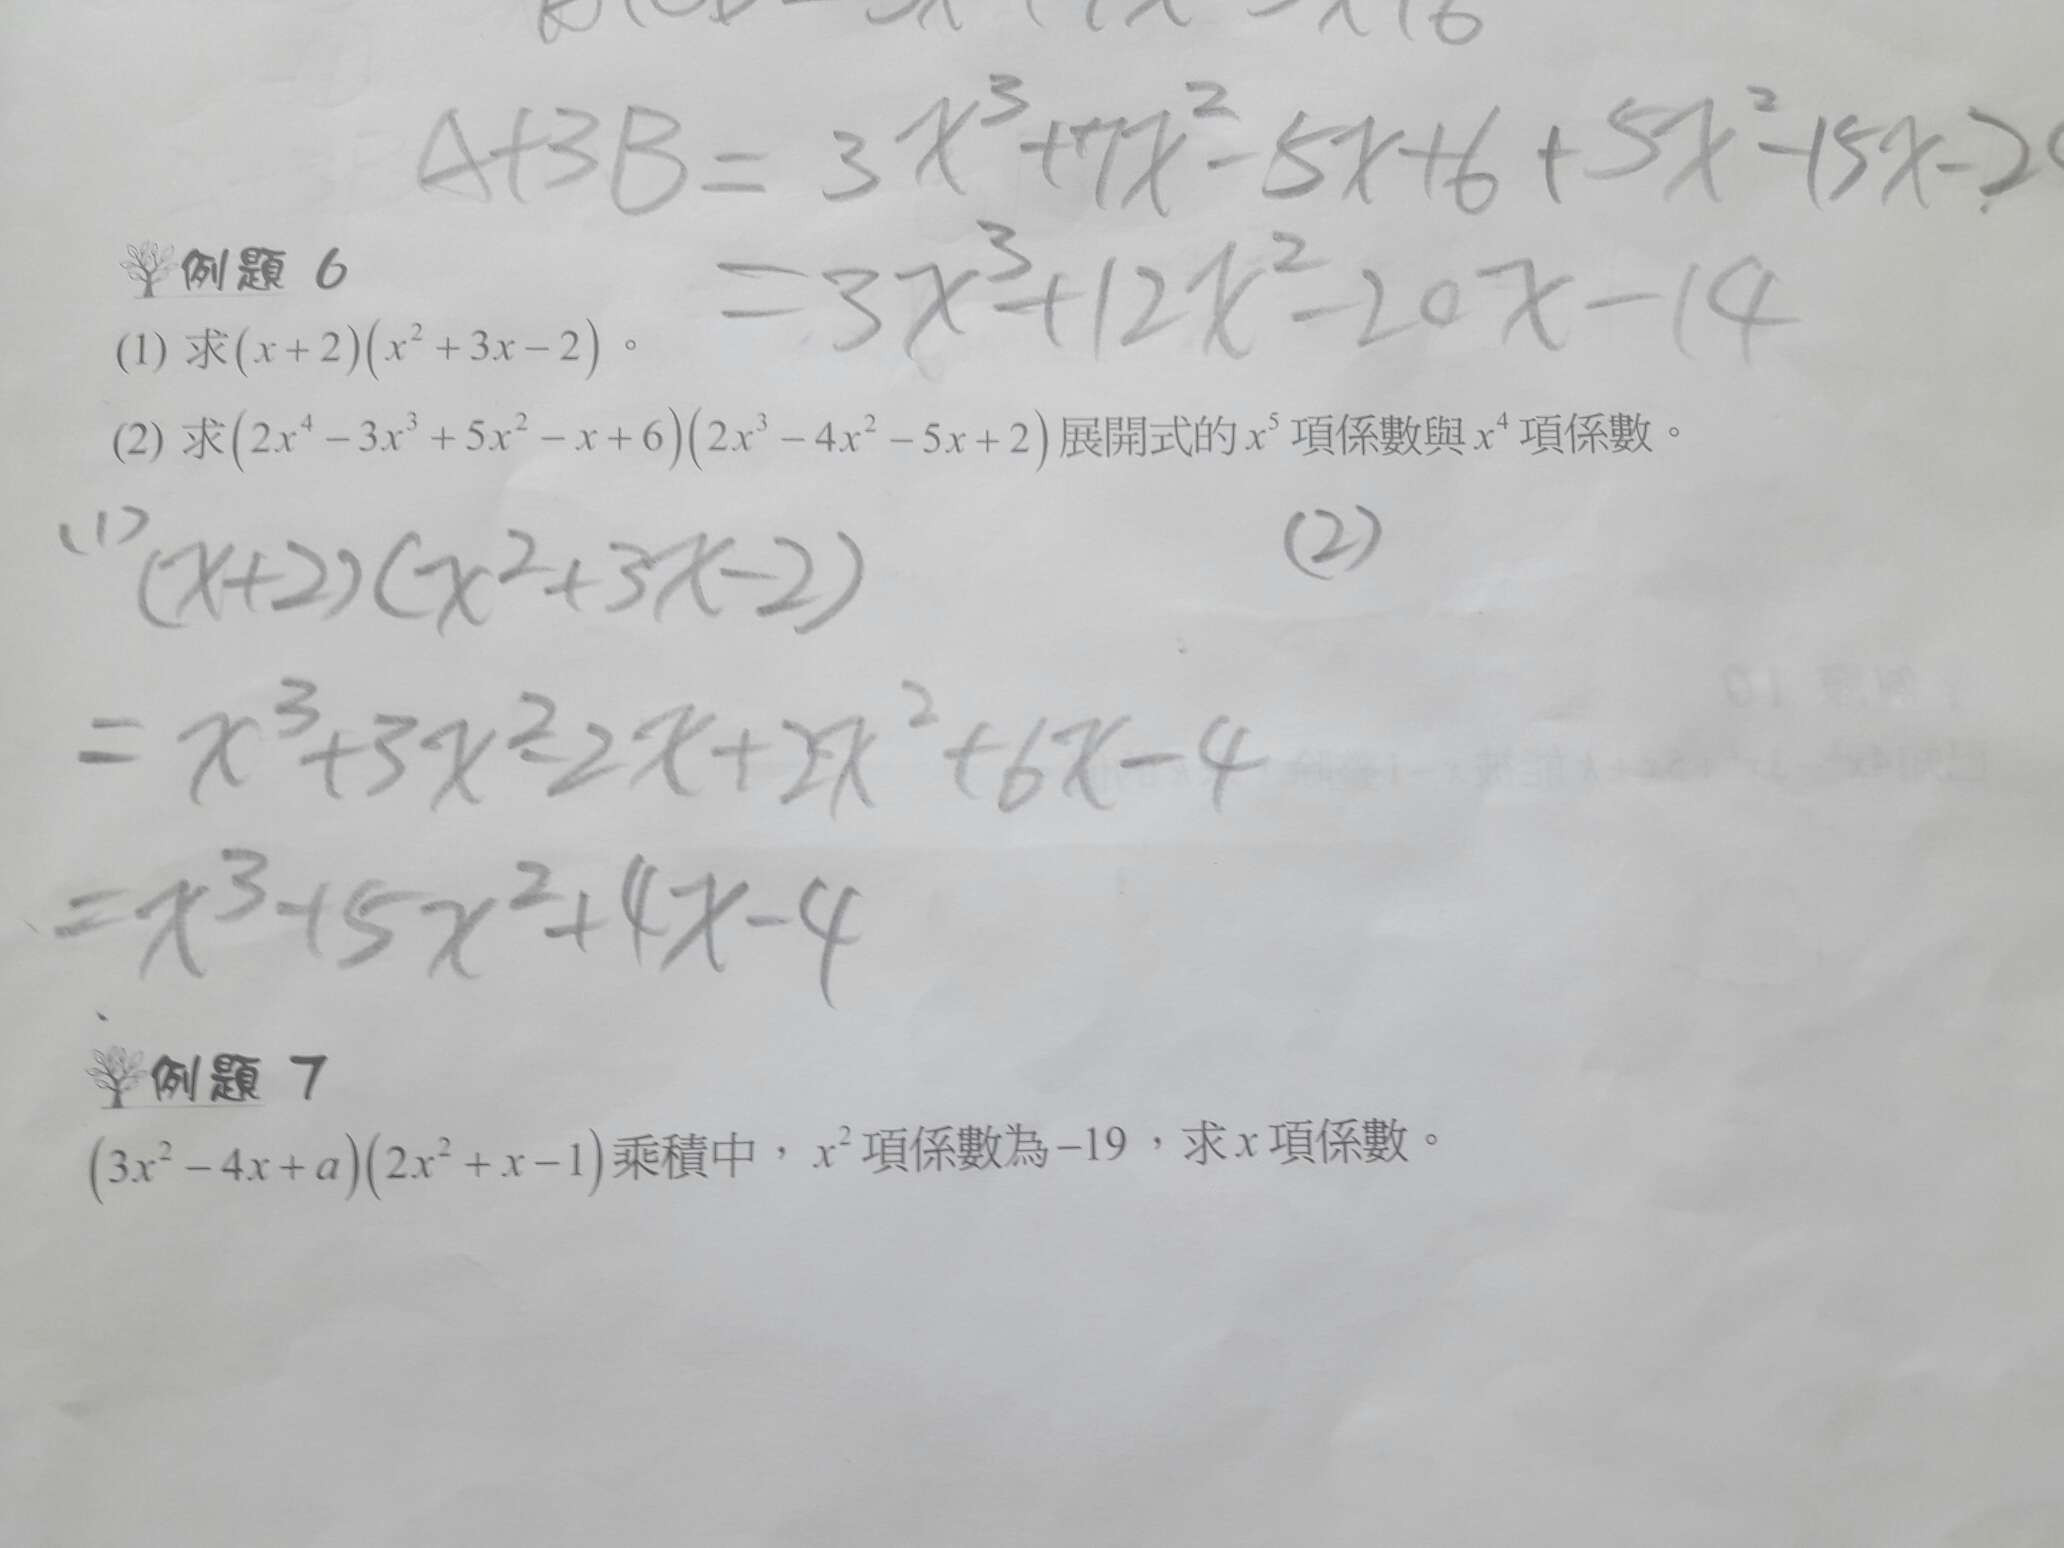 A+3B = 3x³+7x²-5x+6+5x²-15x-2
例題 6
=3x³+12x²-20x-14
(1) 求(x+2)(x²+3x-2)。
(2) 求(2x⁴-3x³+5x²-x+6)(2x³-4x²-5x+2)展開式的x⁵項係數與x⁴項係數。
(1) (x+2)(x²+3x-2)
(2)
= x³+3x²-2x+2x²+6x-4
=x³+5x²+4x-4
例題 7
(3x²-4x+a)(2x²+x-1)乘積中，x²項係數為-19，求x項係數。